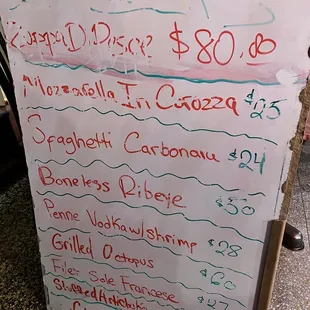 Zuppa Di Pesce $80.00
Mozzarella In Carozza $25
Spaghetti Carbonara $24
Boneless Ribeye $50
Penne Vodka w/shrimp $28
Grilled Octopus $60
Filet Sole Francese $27
Stuffed Artichoke